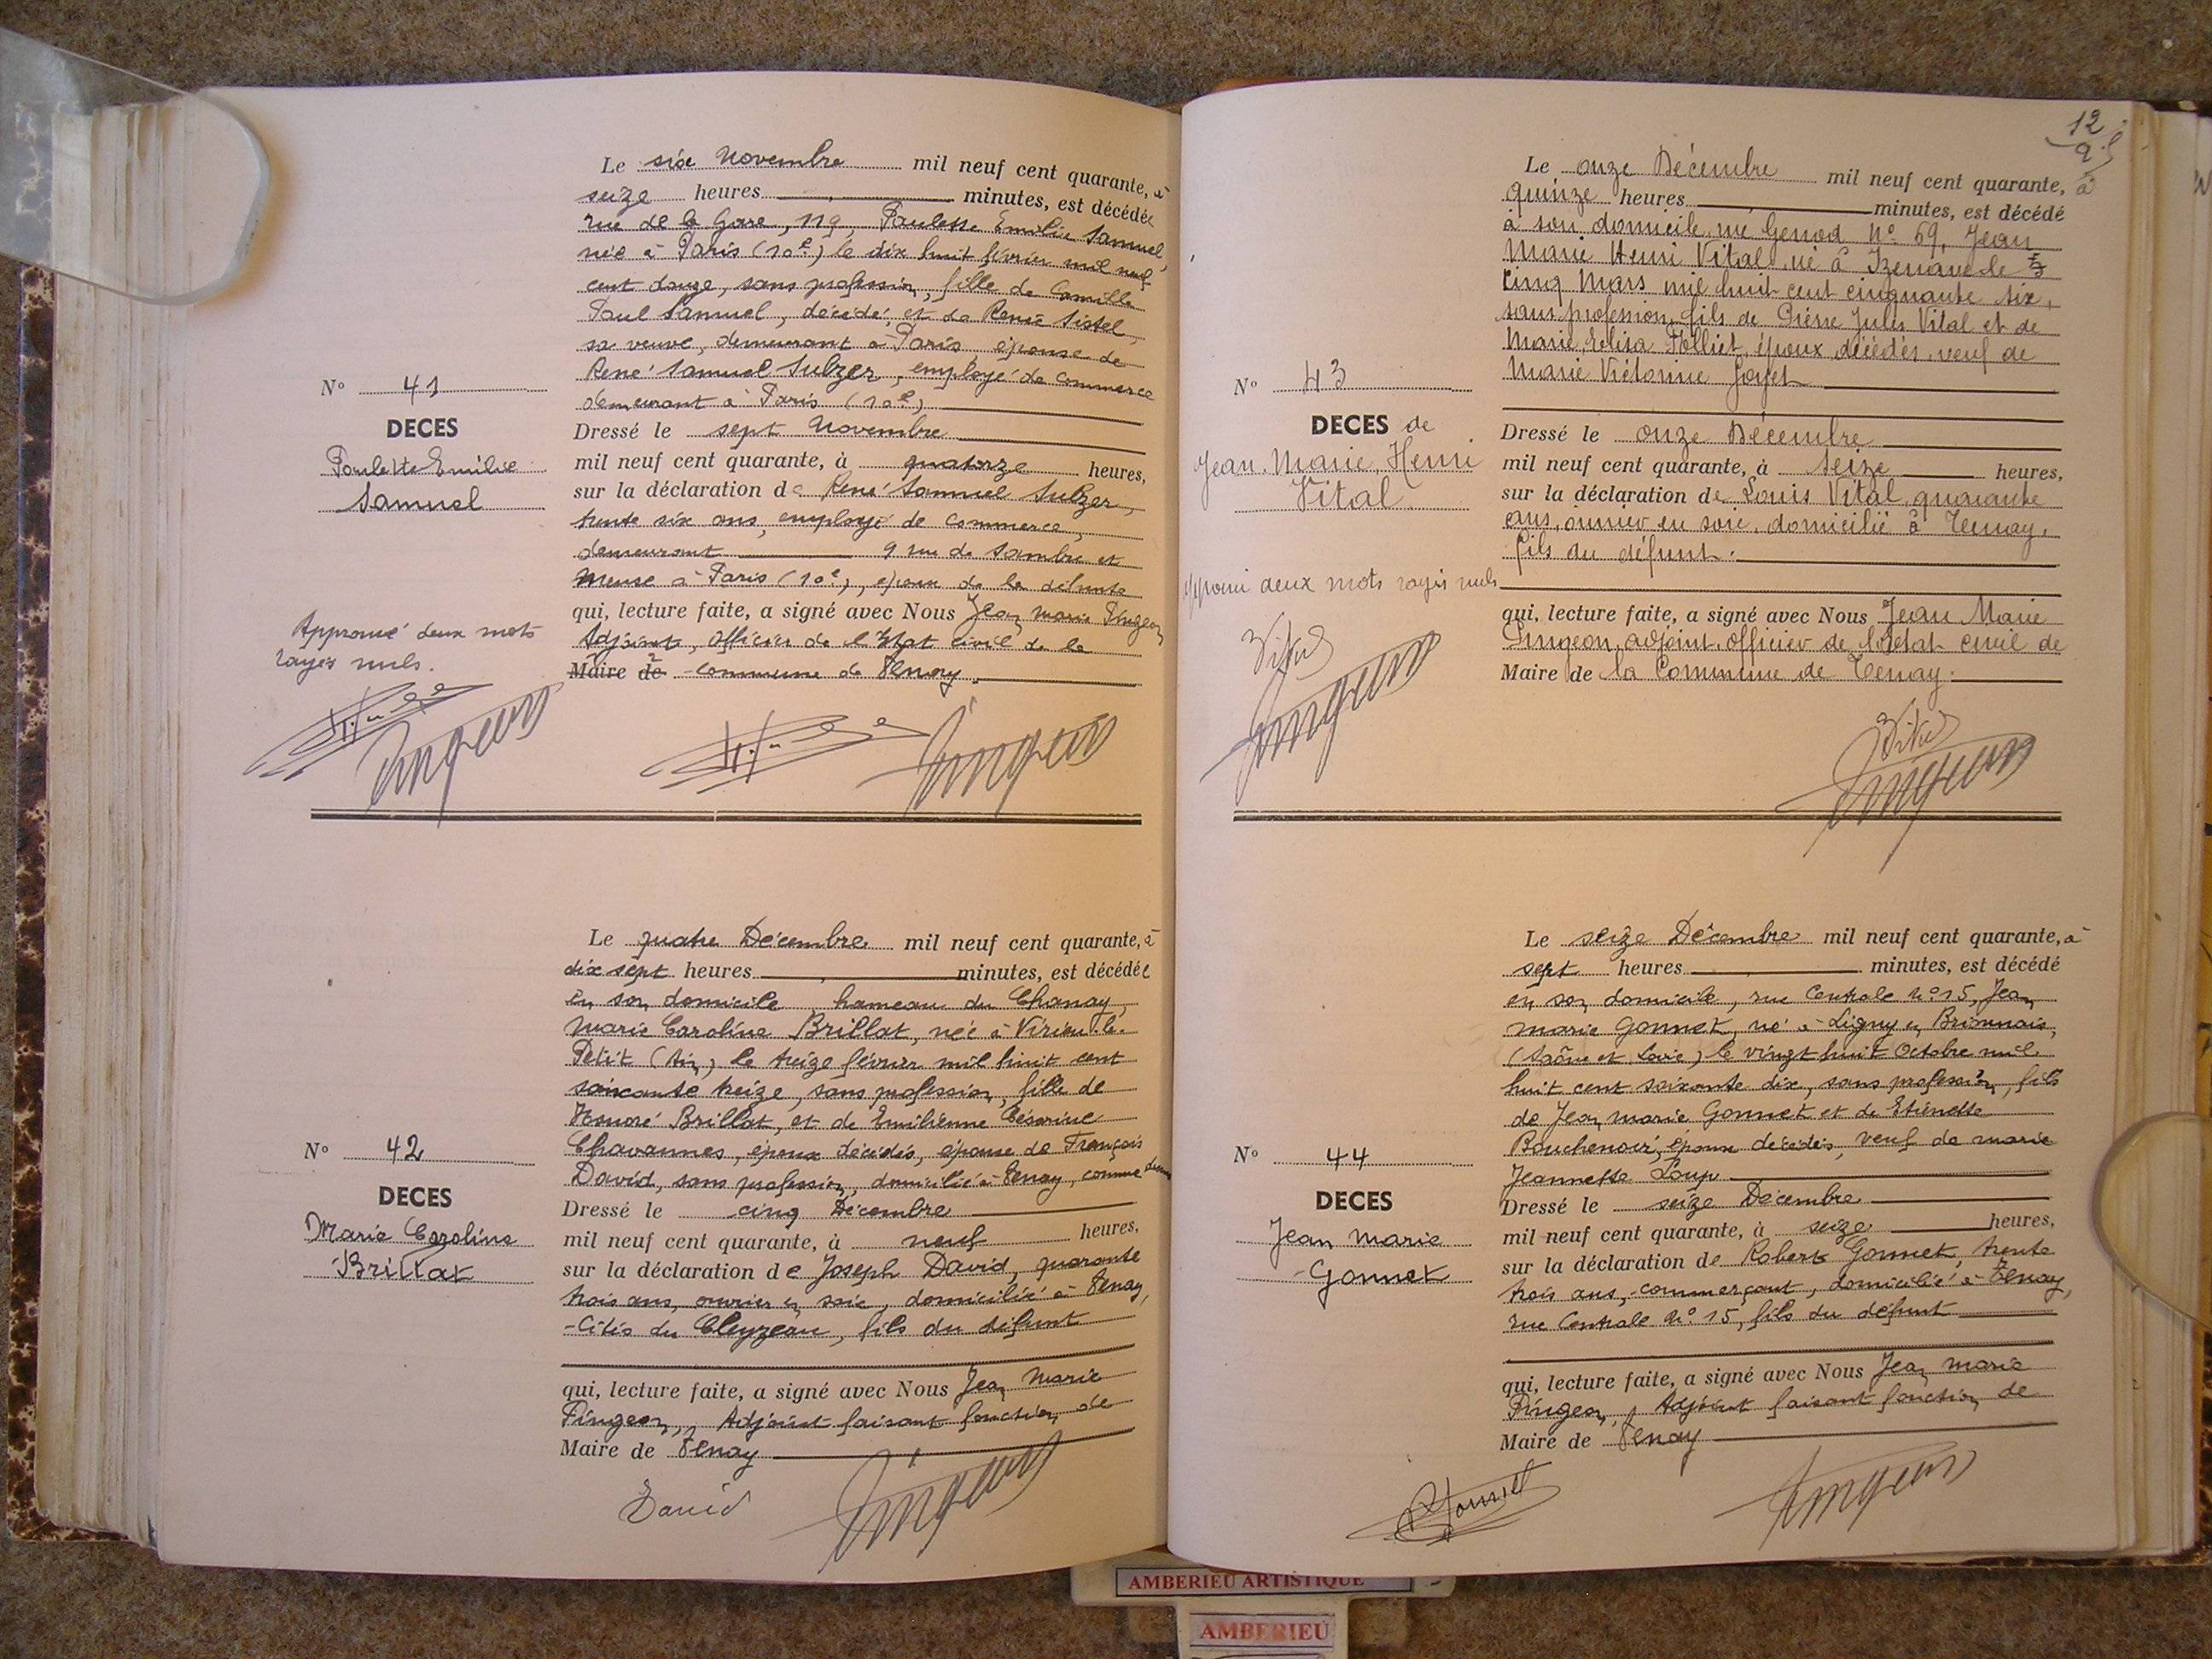 Le six Novembre mil neuf cent quarante, à
seize heures, minutes, est décédée
rue de la Gare, 119, Paulette Emilie Samuel,
née à Paris (10e) le dix huit février mil neuf
cent douze, sans profession, fille de Camille
Paul Samuel, décédé, et de Renée Sistel
sa veuve, demeurant à Paris, épouse de
René Samuel Sulzer, employé de commerce
demeurant à Paris (10e)
N° 41
DECES
Paulette Emilie
Samuel
Dressé le sept Novembre
mil neuf cent quarante, à quatorze heures,
sur la déclaration de René Samuel Sulzer,
trente six ans, employé de commerce,
demeurant 9 rue de Sambre et
Meuse à Paris (10e), époux de la défunte
qui, lecture faite, a signé avec Nous Jean Marie Pingeon
Adjoint, officier de l'Etat civil de la
Maire de commune de Tenay
Approuvé deux mots
rayés nuls.
Pingeon
Pingeon
Le quatre Décembre mil neuf cent quarante, à
dix sept heures, minutes, est décédée
en son domicile, hameau du Chanay,
Marie Caroline Brillat, née à Virieu-le-
Petit (Ain) le treize février mil huit cent
soixante treize, sans profession, fille de
Honoré Brillat, et de Emilienne Césarine
Chavannes, époux décédés, épouse de François
David, sans profession, domicilié à Tenay, comme dessus
N° 42
DECES
Marie Caroline
Brillat
Dressé le cinq Décembre
mil neuf cent quarante, à neuf heures,
sur la déclaration de Joseph David, quarante
trois ans, ouvrier en soie, domicilié à Tenay,
Cités du Cleyzeau, fils du défunt
qui, lecture faite, a signé avec Nous Jean Marie
Pingeon, Adjoint faisant fonction de
Maire de Tenay
David
Pingeon
12
Le onze Décembre mil neuf cent quarante, à
quinze heures, minutes, est décédé
à son domicile, rue Genod N° 69, Jean
Marie Henri Vital, né à Izenave le
cinq Mars mil huit cent cinquante six,
sans profession, fils de Pierre Jules Vital et de
Marie Elisa Folliet, époux décédés, veuf de
Marie Victorine Goyet
N° 43
DECES de
Jean Marie Henri
Vital
Dressé le onze Décembre
mil neuf cent quarante, à seize heures,
sur la déclaration de Louis Vital, quarante
ans, ouvrier en soie, domicilié à Tenay,
fils du défunt.
Approuvé deux mots rayés nuls
qui, lecture faite, a signé avec Nous Jean Marie
Pingeon, adjoint, officier de l'Etat civil de
Maire de la Commune de Tenay.
Vital
Pingeon
Vital
Pingeon
Le seize Décembre mil neuf cent quarante, à
sept heures, minutes, est décédé
en son domicile, rue Centrale N° 15, Jean
Marie Gonnet, né à Ligny en Brionnais,
(Saône et Loire) le vingt huit Octobre mil
huit cent soixante dix, sans profession, fils
de Jean Marie Gonnet et de Etienette
Bouchenoir, époux décédés, veuf de Marie
Jeannette Loup
N° 44
DECES
Jean Marie
Gonnet
Dressé le seize Décembre
mil neuf cent quarante, à seize heures,
sur la déclaration de Robert Gonnet, trente
trois ans, commerçant, domicilié à Tenay,
rue Centrale N° 15, fils du défunt
qui, lecture faite, a signé avec Nous Jean Marie
Pingeon, Adjoint faisant fonction de
Maire de Tenay
R Gonnet
Pingeon
AMBERIEU ARTISTIQUE
AMBERIEU